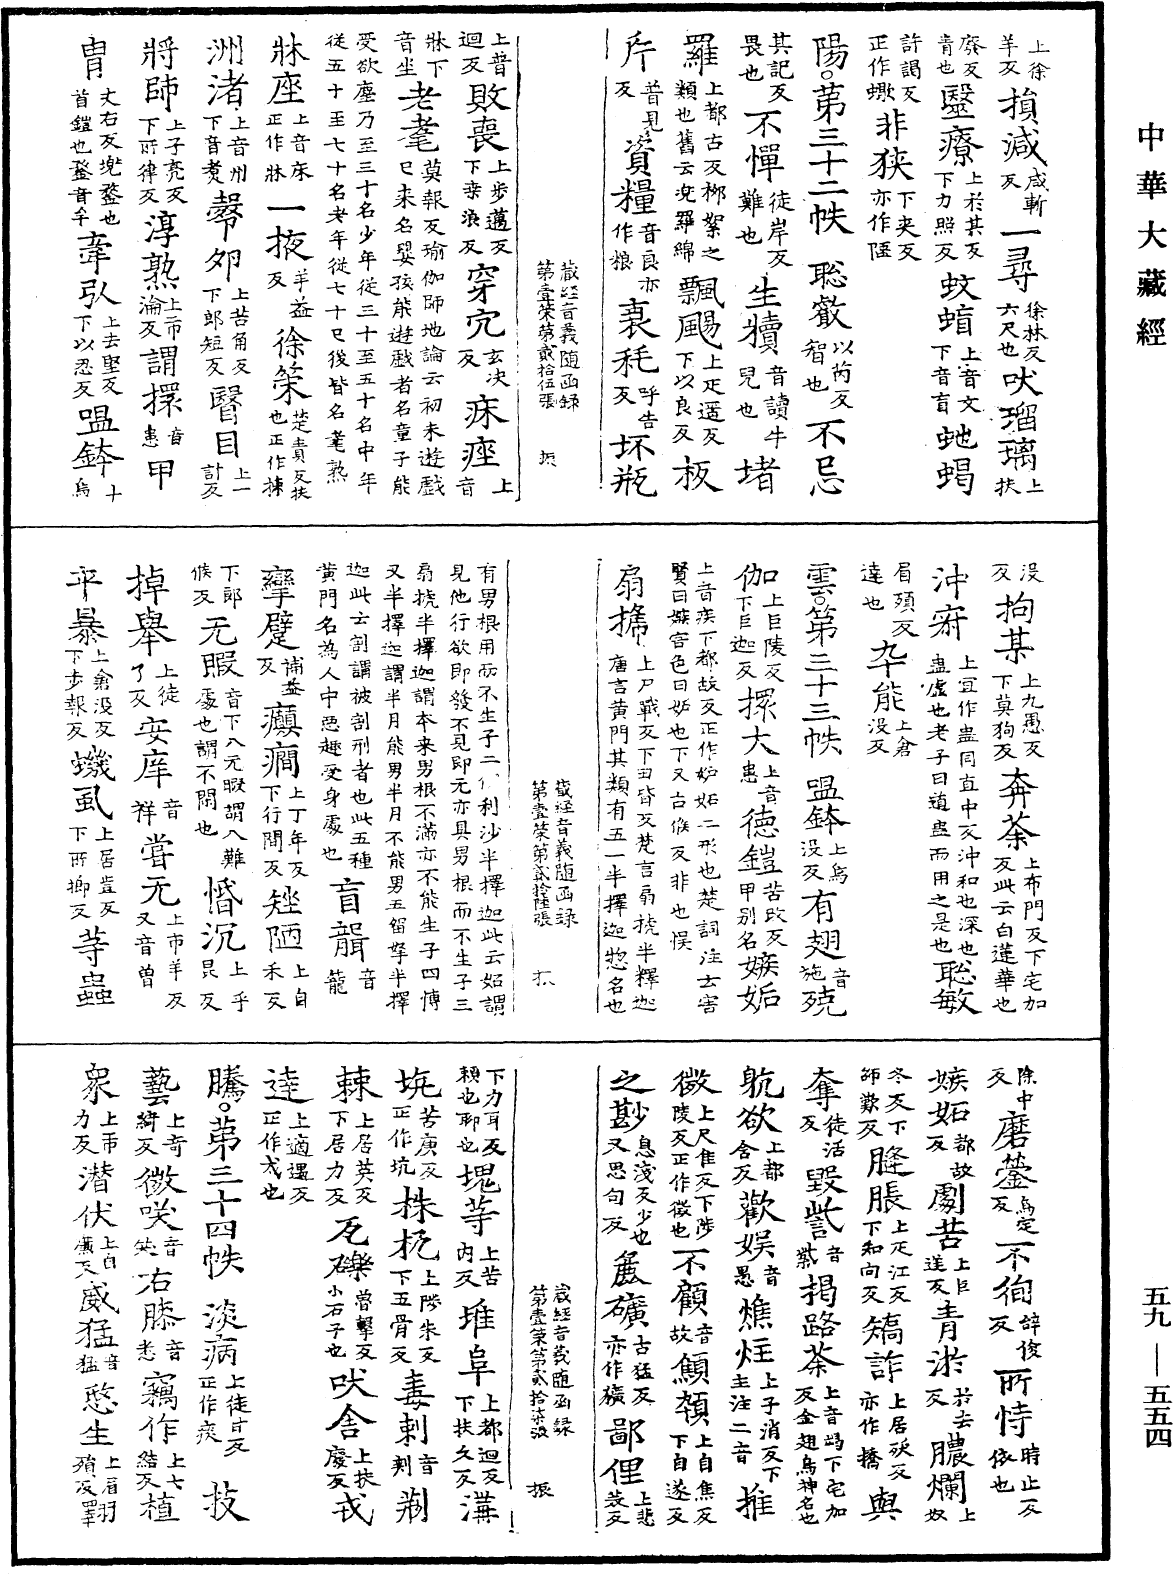 中華大藏經
上徐羊反損減咸斬反一尋徐林反六尺也吠瑠璃上扶
廢反青也毉療上於其反下力照反蚊蝱上音文下音盲虵蝎
許謁反正作蠍非狭下夾反亦作陿
陽。第三十二帙 聡叡以芮反智也不忌
其記反畏也不憚徒岸反難也生犢音讀牛兒也堵
羅上都古反柳絮之類也舊云兜羅綿飄颺上疋遥反下以良反板
斤普見反資糧音良亦作粮衰秏呼告反坏瓶
藏經音義随函録 第壹筞第貳拾伍張 振
上普迴反敗喪上步邁反下桒浪反穿穴玄决反痳痤上音
牀下音坐老耄莫報反瑜伽師地論云初未遊戲
巳来名嬰孩能遊戲者名童子能
受欲塵乃至三十名少年従三十至五十名中年
従五十至七十名老年従七十巳後皆名耄熟
牀座上音床正作牀一掖羊益反徐筞楚責反扶也正作揀
洲渚上音州下音煮𣫘夘上苦角反下郎短反瞖目上一計反
將帥上子亮反下所律反淳熟上市淪反謂擐音患甲
胄丈右反兜鍪也首鎧也鍪音牟牽引上去堅反下以忍反嗢鉢上烏
没反拘某上九愚反下莫狗反奔荼上布門反下宅加反此云白蓮華也
沖㝛上宜作盅同直中反沖和也深也盅虚也老子曰道盅而用之是也聡敏
眉殞反達也卒能上倉没反
雲。第三十三帙 嗢鉢上烏没反有翅音施殑
伽上巨陵反下巨迦反擐大上音患徳鎧苦改反甲别名嫉妬
上音疾下都故反正作妒妬二形也楚詞注云害
賢曰嫉害色曰妬也下又古候反非也悮
扇搋上尸戰反下丑皆反梵言扇搋半釋迦
唐言黄門其類有五一半擇迦惣名也
藏經音義随函録 第壹筞第貳拾陸張 振
有男根用而不生子二伊利沙半擇迦此云妬謂
見他行欲即發不見即无亦具男根而不生子三
扇搋半擇迦謂本来男根不滿亦不能生子四博
叉半擇迦謂半月能男半月不能男五留拏半擇
迦此云割謂被割刑者也此五種
黄門名為人中惡趣受身處也盲聾音籠
攣躄補益反癲癇上丁年反下行間反矬陋上自禾反
下郎候反无暇音下八无暇謂八難處也謂不閑也惛沉上乎昆反
掉舉上徒了反安庠音祥嘗无上市羊反又音曽
平暴上倉没反下步報反蟣虱上居豈反下所擳反䓁蟲
除中反磨蓥烏定反不徇辝俊反所恃時止反依也
嫉妬都故反劇苦上巨逆反青淤扵去反膿爛上奴
冬反下郎歎反膖脹上疋江反下知向反矯詐上居殀反亦作撟與
奪徒活反毀呰音紫揭路荼上音竭下宅加反金翅鳥神名也
躭欲上都含反歡娱音愚燋炷上子消反下主注二音推
徴上尺隹反下陟陵反正作徵也不顧音故顦顇上自焦反下自遂反
之尠息淺反少也又思句反麁礦古猛反亦作穬鄙俚上悲
藏經音義随函録 第壹筞第貳拾柒張 振
下力耳反頼也聊也塊䓁上苦内反堆阜上都迴反下扶久反溝
坑苦庚反正作坑株杌上陟朱反下五骨反毒刺音刾荊
棘上居英反下居力反瓦礫音擊反小石子也吠舍上扶廢反戎
逵上適遇反正作戎也
騰。第三十四帙 淡病上徒甘反正作痰技
藝上奇綺反微咲音笑右膝音悉竊作上七結反植
衆上市力反潜伏上自廉反威猛音猛愍生上眉殞反䍿
五九——五五四